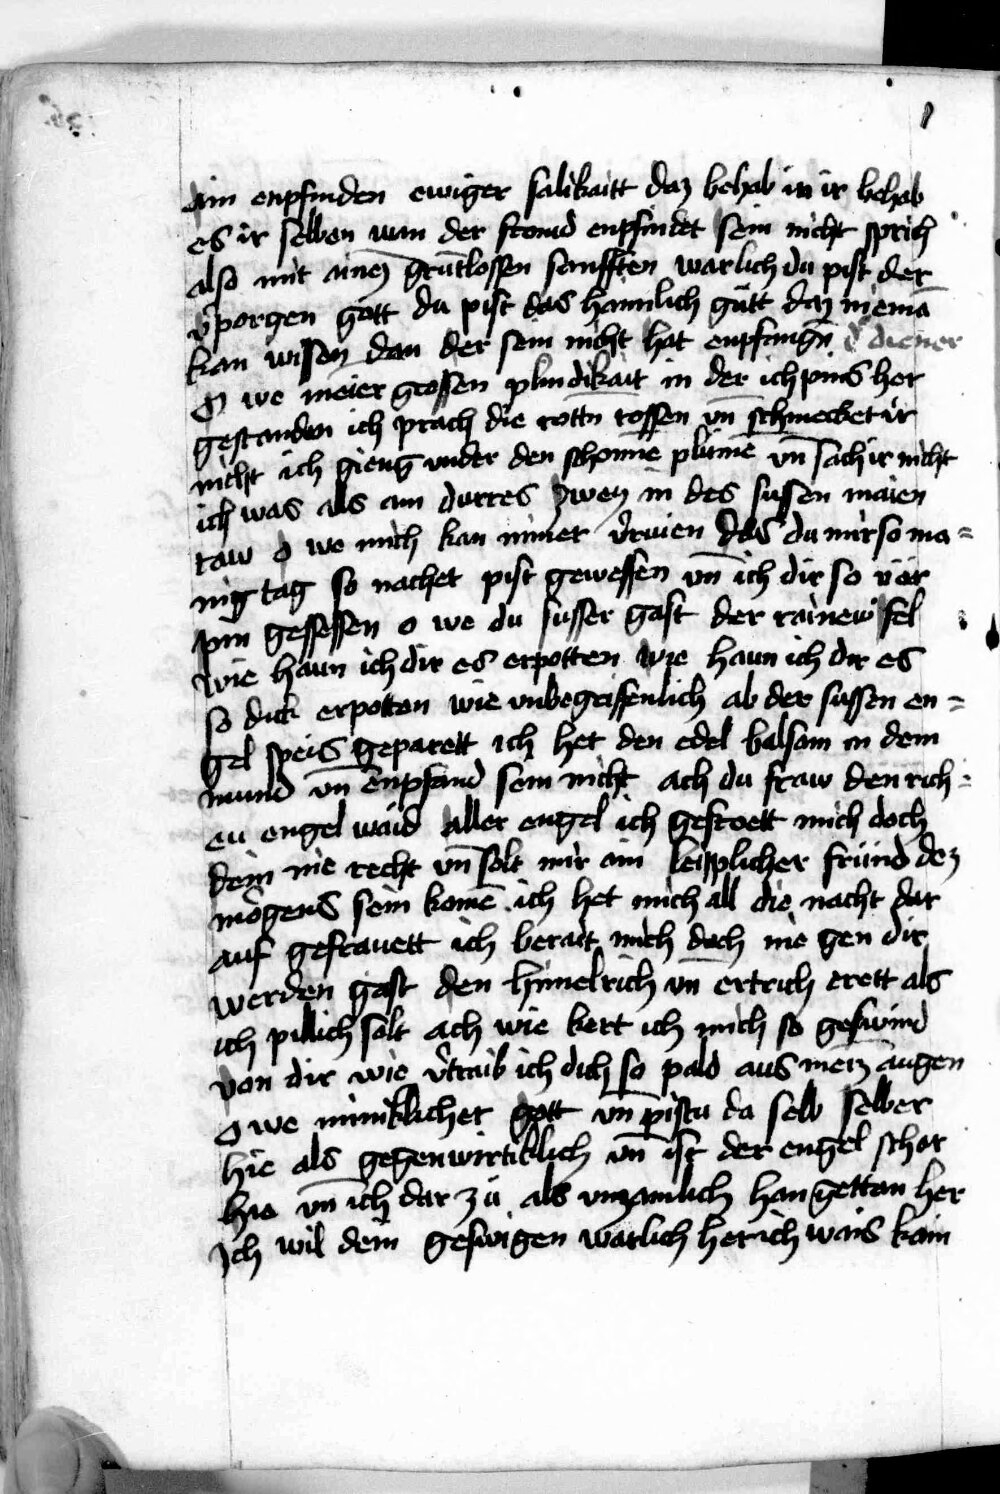 ain enpfinden ewiger salikaitt daz behab in ir behab
es ir selben wan der fromd enpfindet sein nicht sprich
also mit ainez gruntlossen seufften warlich du pist der
v̄porgen gott du pist das haimlich gütt daz niemā
kan wisen dan der sein nicht hat enpfangn̄ d̄ diener
O we meier grossen plindikait in der ich pins her
gestanden ich prach die rottn rossen vn̄ schmecket ir
nicht ich gieng vnder den schonn̄e plümē vn̄ sach ir nicht
ich was als ain durres zweÿ in des süssen maien
taw o we mich kan nimer v̄ruien das du mir so ma=
nig tag so nachet pist gewessen vn̄ ich dir so ver
pin gessessen o we du susser gast der rainew sel
wie haun ich dir es erpotten wie haun ich dir es
so dick erpotten wie vnbegriffenlich ab der sussen en=
gel speis geparett ich het den edel balsam in dem
mund vn̄ enpfand sein nicht ach du fraw den rich=
en engel waid aller engel ich gefroett mich doch
dein nie recht vn̄ solt mir ain leipplicher fründ dez
mogens sein komē ich het mich all die nacht dar
auf gefrauett ich berait mich doch nie gen dir
werden gast den himelrich vn̄ ertrich erett als
ich pillich solt ach wie kert ich mich so geswind
von dir wie v̄traib ich dich so pald aus meiz augen
o we miniklicher gott vn̄ pistu da selb selber
hie als gegenwirtiklich vn̄ ist der engel schar
hie vn̄ ich dar zü als vnzamlich han gettan her
Ich wil dein geswigen warlich her ich wais kain